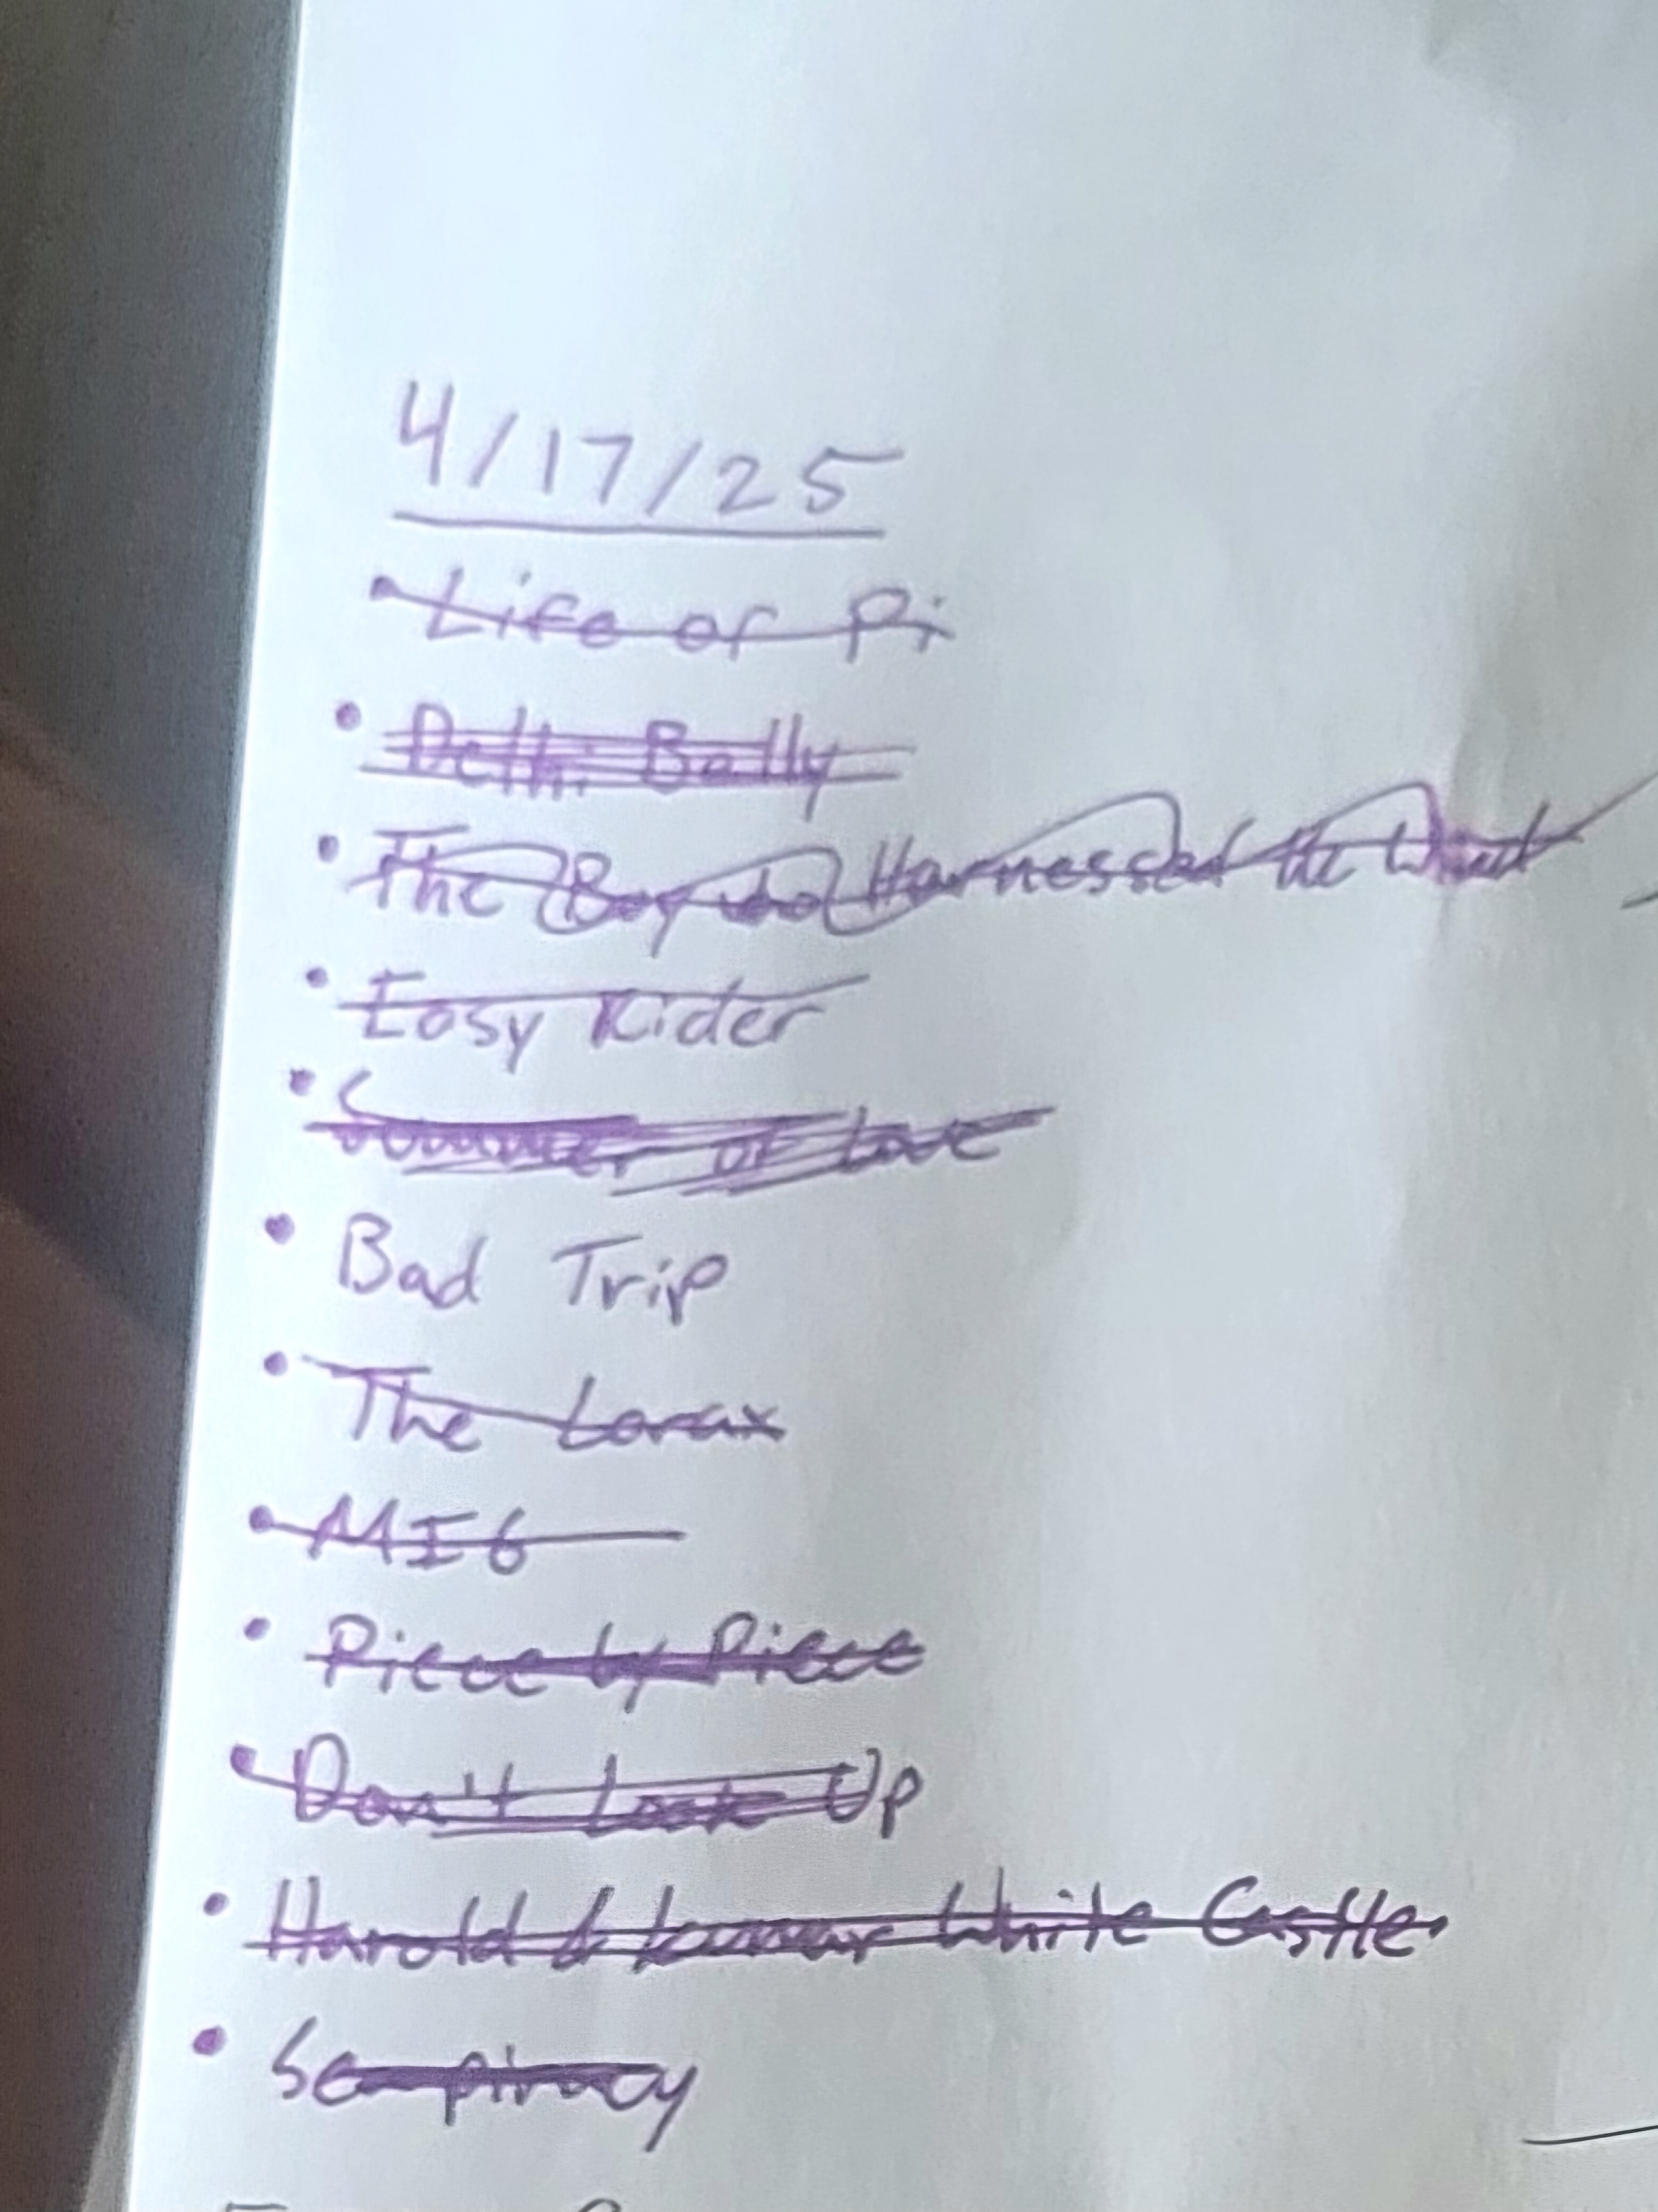 4/17/25
• Life of Pi
• Delhi Belly
• The Boy who Harnessed the Wind
• Easy Rider
• Summer of Love
• Bad Trip
• The Lorax
• MI6
• Piece by Piece
• Don't Look Up
• Harold & Kumar White Castle
• Seaspiracy